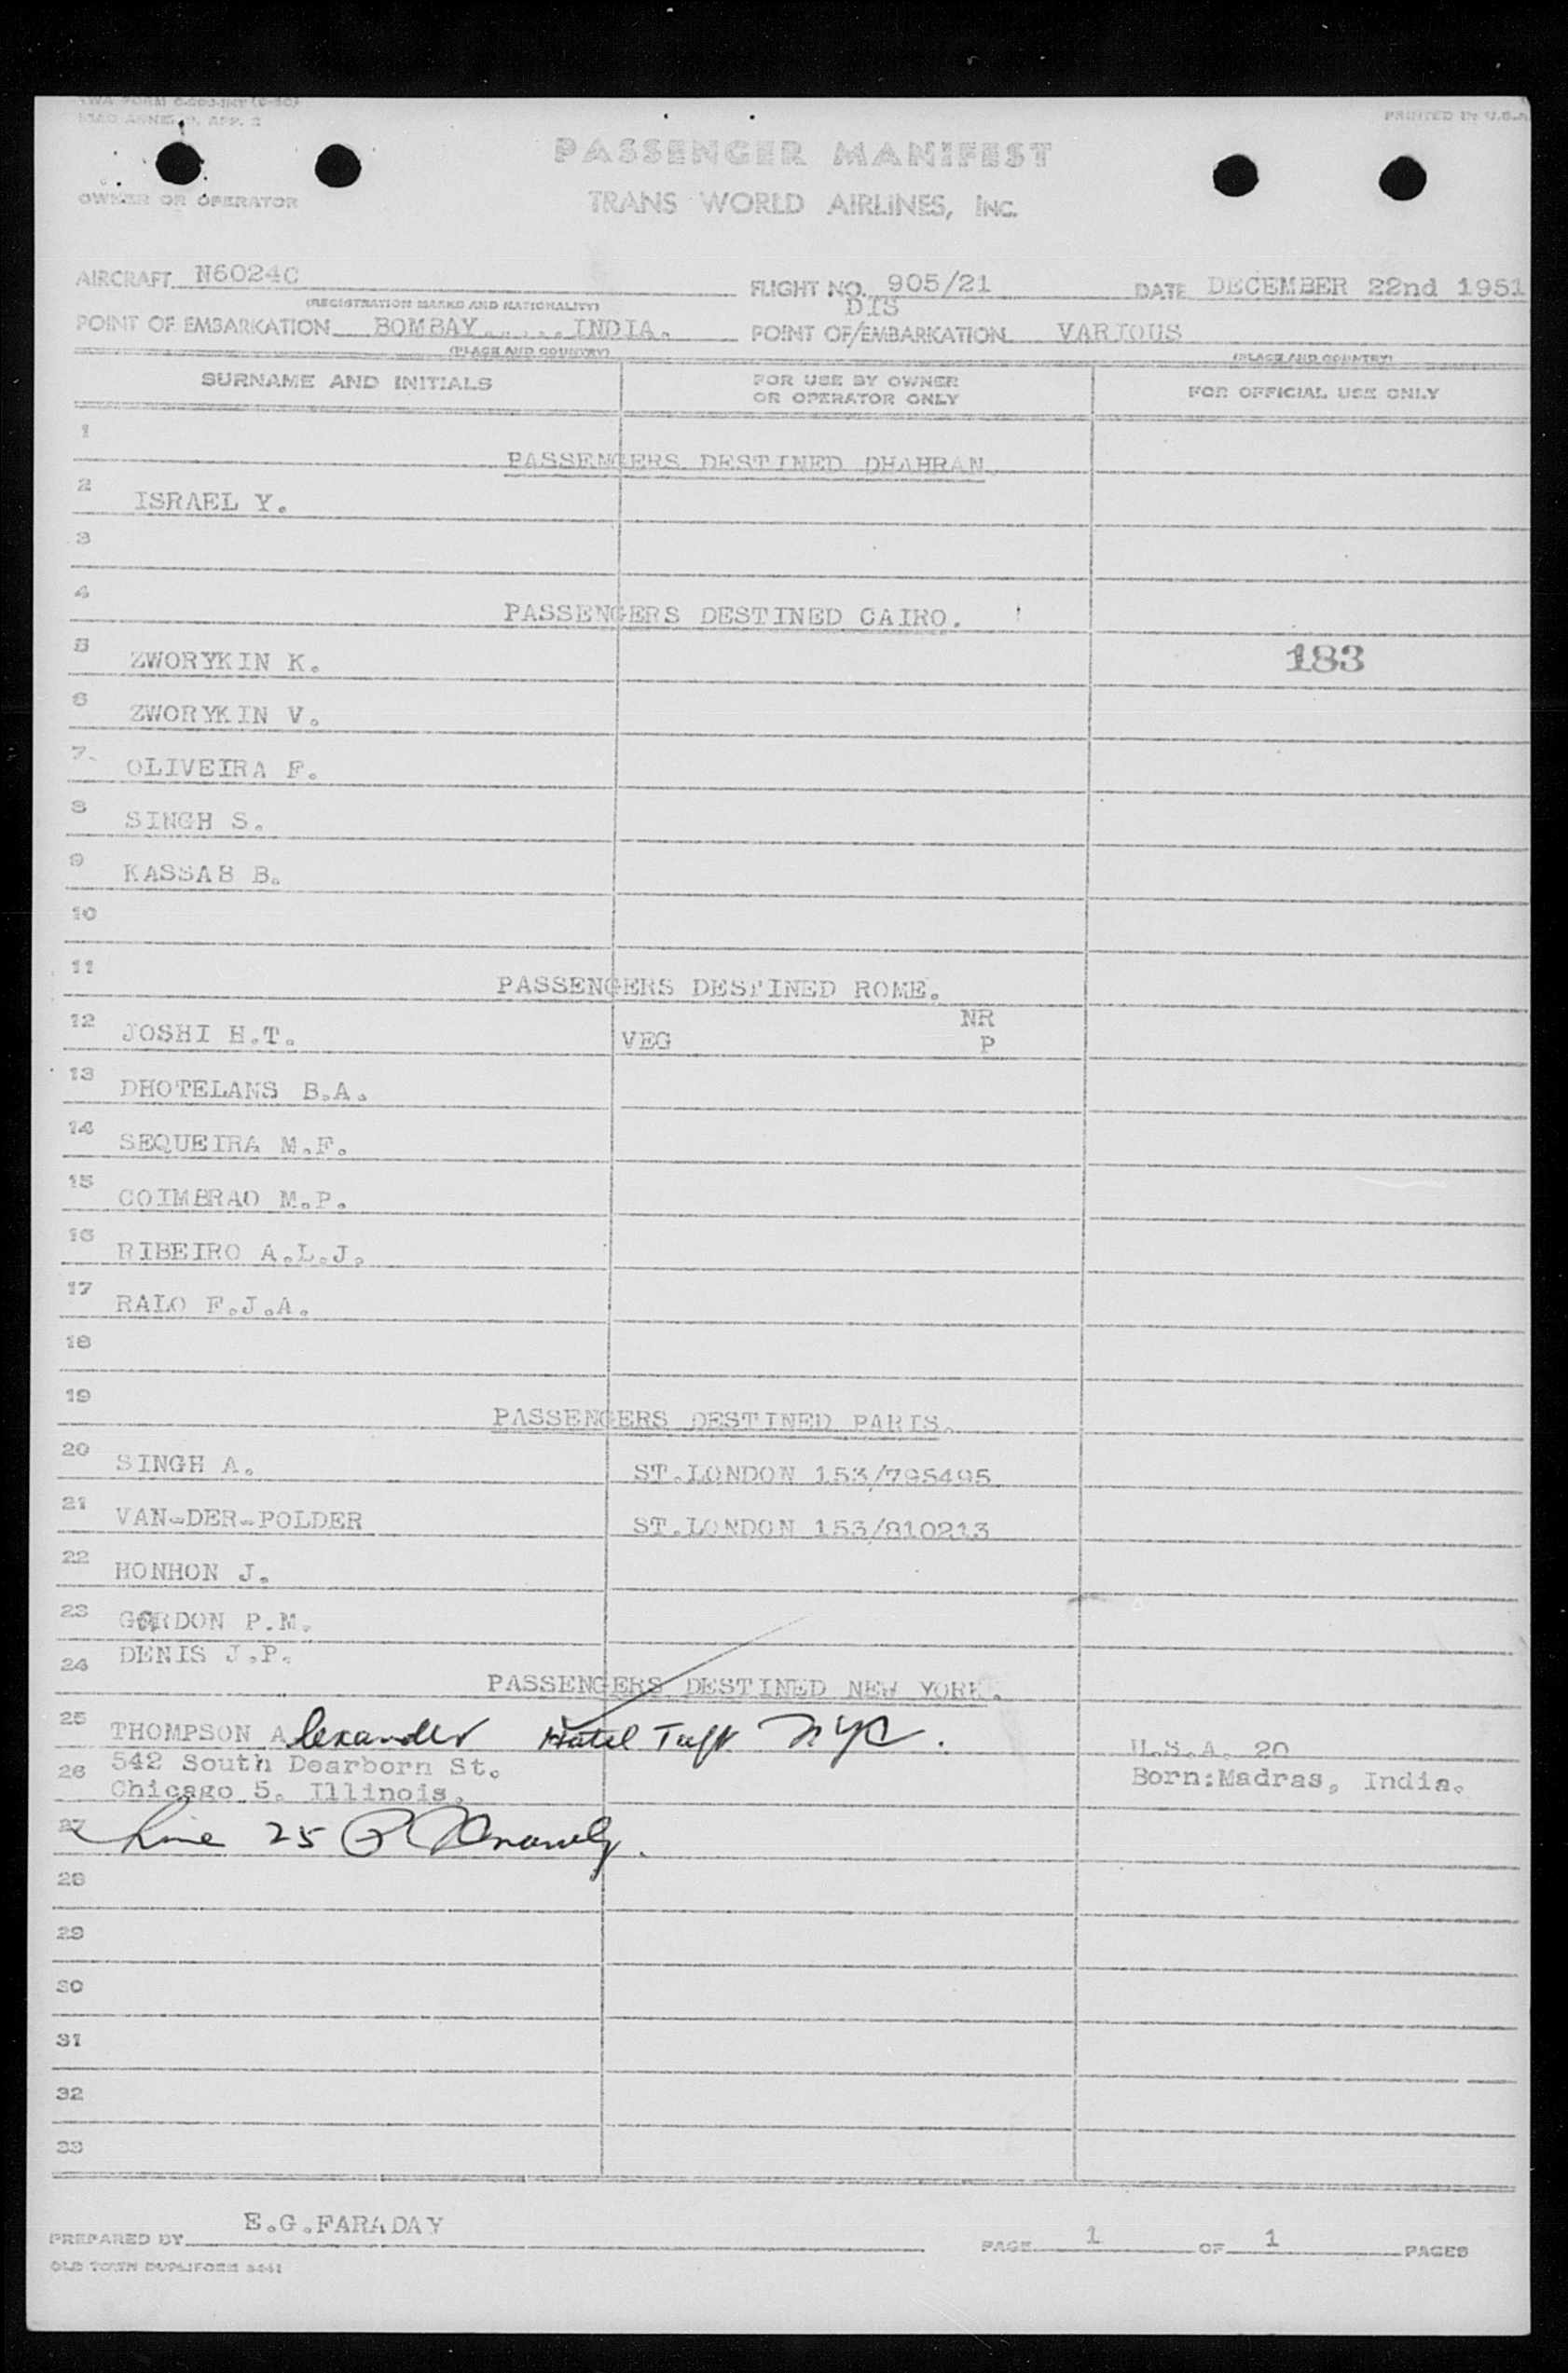 TWA FORM
ICAO ANNEX 9, APP. 2
PRINTED IN U.S.A.
PASSENGER MANIFEST
OWNER OR OPERATOR
TRANS WORLD AIRLINES, INC.
AIRCRAFT N6024C FLIGHT NO. 905/21 DATE DECEMBER 22nd 1951
(REGISTRATION MARKS AND NATIONALITY)
DIS
POINT OF EMBARKATION BOMBAY......INDIA. POINT OF/EMBARKATION VARIOUS
(PLACE AND COUNTRY) (PLACE AND COUNTRY)
SURNAME AND INITIALS FOR USE BY OWNER OR OPERATOR ONLY FOR OFFICIAL USE ONLY
1
PASSENGERS DESTINED DHAHRAN.
2 ISRAEL Y.
3
4
PASSENGERS DESTINED CAIRO.
5 ZWORYKIN K. 183
6 ZWORYKIN V.
7 OLIVEIRA F.
8 SINGH S.
9 KASSAB B.
10
11
PASSENGERS DESTINED ROME.
NR
12 JOSHI H.T. VEG P
13 DHOTELANS B.A.
14 SEQUEIRA M.F.
15 COIMBRAO M.P.
16 RIBEIRO A.L.J.
17 RALO F.J.A.
18
19
PASSENGERS DESTINED PARIS.
20 SINGH A. ST.LONDON 153/795495
21 VAN-DER-POLDER ST.LONDON 153/810213
22 HONHON J.
23 GORDON P.M.
24 DENIS J.P.
PASSENGERS DESTINED NEW YORK.
25 THOMPSON Alexander Hotel Taft NYC. U.S.A. 20
26 542 South Dearborn St. Born:Madras, India.
Chicago 5. Illinois.
27 Line 25
28
29
30
31
32
33
PREPARED BY E.G.FARADAY PAGE 1 OF 1 PAGES
OLD TOWN DUPLIFORM